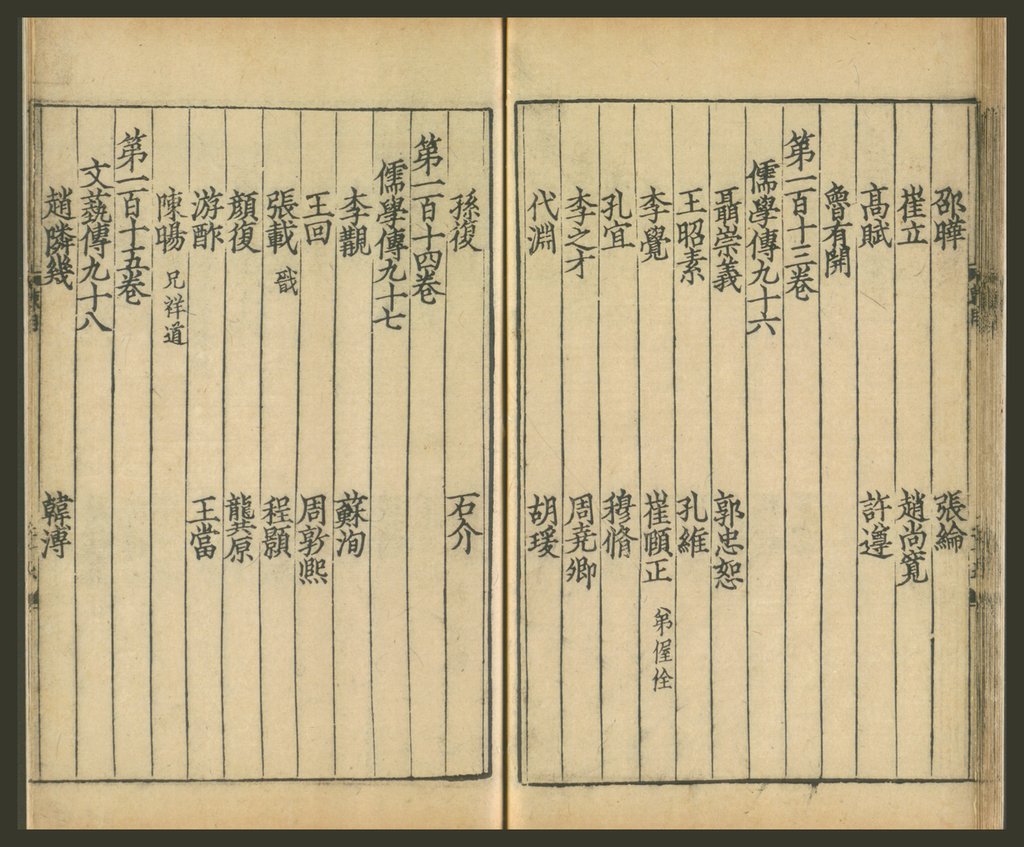 邵曄 張綸
崔立 趙尚寬
髙賦 許遵
魯有開
第一百十三卷
儒學傳九十六
聶崇義 郭忠恕
王昭素 孔維
李覺 崔頥正 弟偓佺
孔宜 穆脩
李之才 周堯卿
代淵 胡瑗
孫復 石介
第一百十四卷
儒學傳九十七
李覯 蘇洵
王回 周敦熙
張載 戩 程顥
顔復 龔原
游酢 王當
陳暘 兄祥道
第一百十五卷
文藝傳九十八
趙隣幾 韓溥